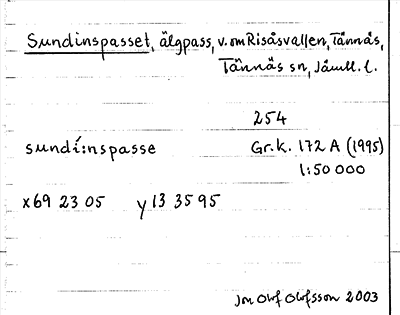 Sundinspasset, älgpass, v. om Risåsvallen, Tännäs,
Tännäs sn, Jämtl. l.
254
sundí:nspasse Gr.k. 172 A (1995)
1:50 000
x69 23 05 y 13 35 95
Jon Olof Olofsson 2003